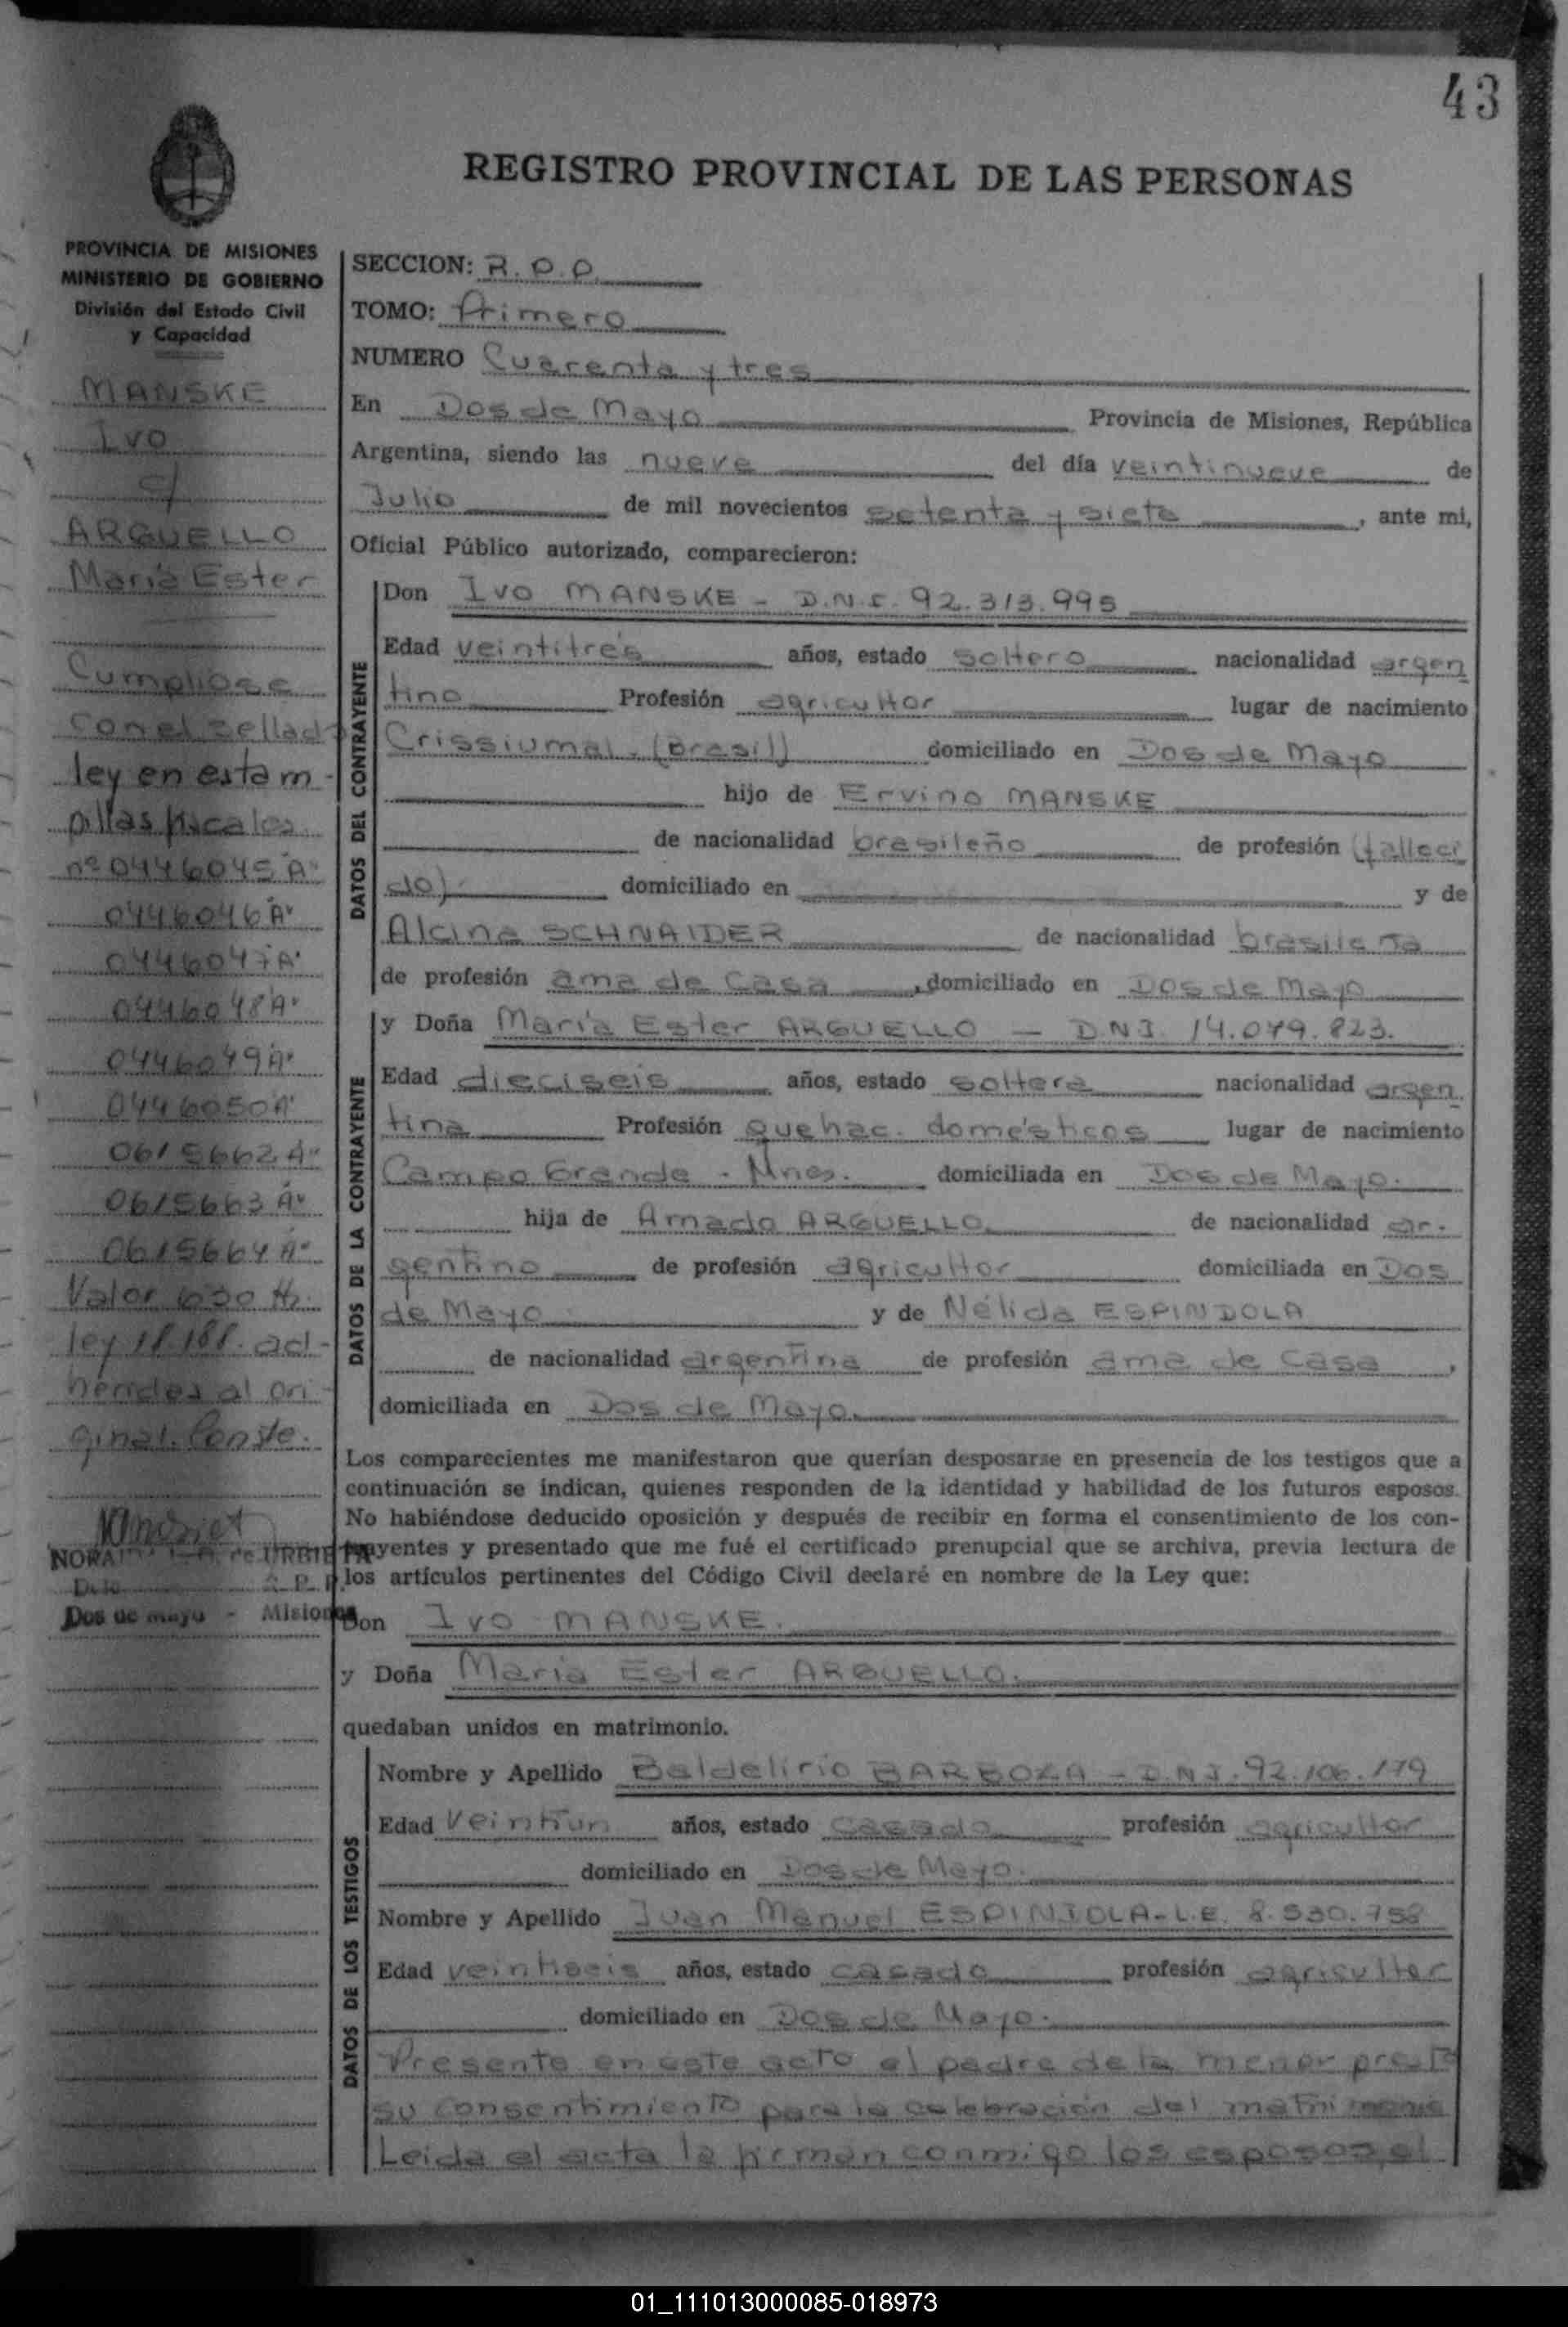 43
REGISTRO PROVINCIAL DE LAS PERSONAS
PROVINCIA DE MISIONES
MINISTERIO DE GOBIERNO
División del Estado Civil
y Capacidad
MANSKE
Ivo
c/
ARGUELLO
María Ester
Cumpliose
con el sellado
ley en estam-
pillas fiscales
nº 0446045 A"
0446046 A"
0446047 A"
0446048 A"
0446049 A"
0446050 A"
0615662 A"
0615663 A"
0615664 A"
Valor
ley 18.188. ad-
heridas al ori-
ginal. Conste.
NORA de URBIETA
Dos de mayo - Misiones
SECCION: R.P.P.
TOMO: Primero
NUMERO Cuarenta y tres
En Dos de Mayo Provincia de Misiones, República
Argentina, siendo las nueve del día veintinueve de
Julio de mil novecientos setenta y siete, ante mi,
Oficial Público autorizado, comparecieron:
DATOS DEL CONTRAYENTE
Don Ivo MANSKE - D.N.I. 92.313.995
Edad veintitrés años, estado soltero nacionalidad argen
tino Profesión agricultor lugar de nacimiento
Crissiumal. (Brasil) domiciliado en Dos de Mayo
hijo de Ervino MANSKE
de nacionalidad brasileño de profesión (falleci
do). domiciliado en y de
Alcina SCHNAIDER de nacionalidad brasileña
de profesión ama de casa, domiciliado en Dos de Mayo
DATOS DE LA CONTRAYENTE
y Doña María Ester ARGUELLO - D.N.I. 14.079.823.
Edad dieciseis años, estado soltera nacionalidad argen
tina Profesión quehac. domésticos lugar de nacimiento
Campo Grande - Mnes. domiciliada en Dos de Mayo.
hija de Amado ARGUELLO. de nacionalidad ar-
gentino de profesión agricultor domiciliada en Dos
de Mayo y de Nélida ESPINDOLA
de nacionalidad argentina de profesión ama de casa,
domiciliada en Dos de Mayo.
Los comparecientes me manifestaron que querían desposarse en presencia de los testigos que a
continuación se indican, quienes responden de la identidad y habilidad de los futuros esposos.
No habiéndose deducido oposición y después de recibir en forma el consentimiento de los con-
trayentes y presentado que me fué el certificado prenupcial que se archiva, previa lectura de
los artículos pertinentes del Código Civil declaré en nombre de la Ley que:
Don Ivo MANSKE.
y Doña María Ester ARGUELLO.
quedaban unidos en matrimonio.
DATOS DE LOS TESTIGOS
Nombre y Apellido Baldelirio BARBOZA - D.N.I. 92.106.179
Edad veintiun años, estado casado profesión agricultor
domiciliado en Dos de Mayo.
Nombre y Apellido Juan Manuel ESPINDOLA - L.E. 8.530.758
Edad veintiseis años, estado casado profesión agricultor
domiciliado en Dos de Mayo.
Presente en este acto el padre de la menor presta
su consentimiento para la celebración del matrimonio
Leida el acta la firman conmigo los esposos, el
01_111013000085-018973